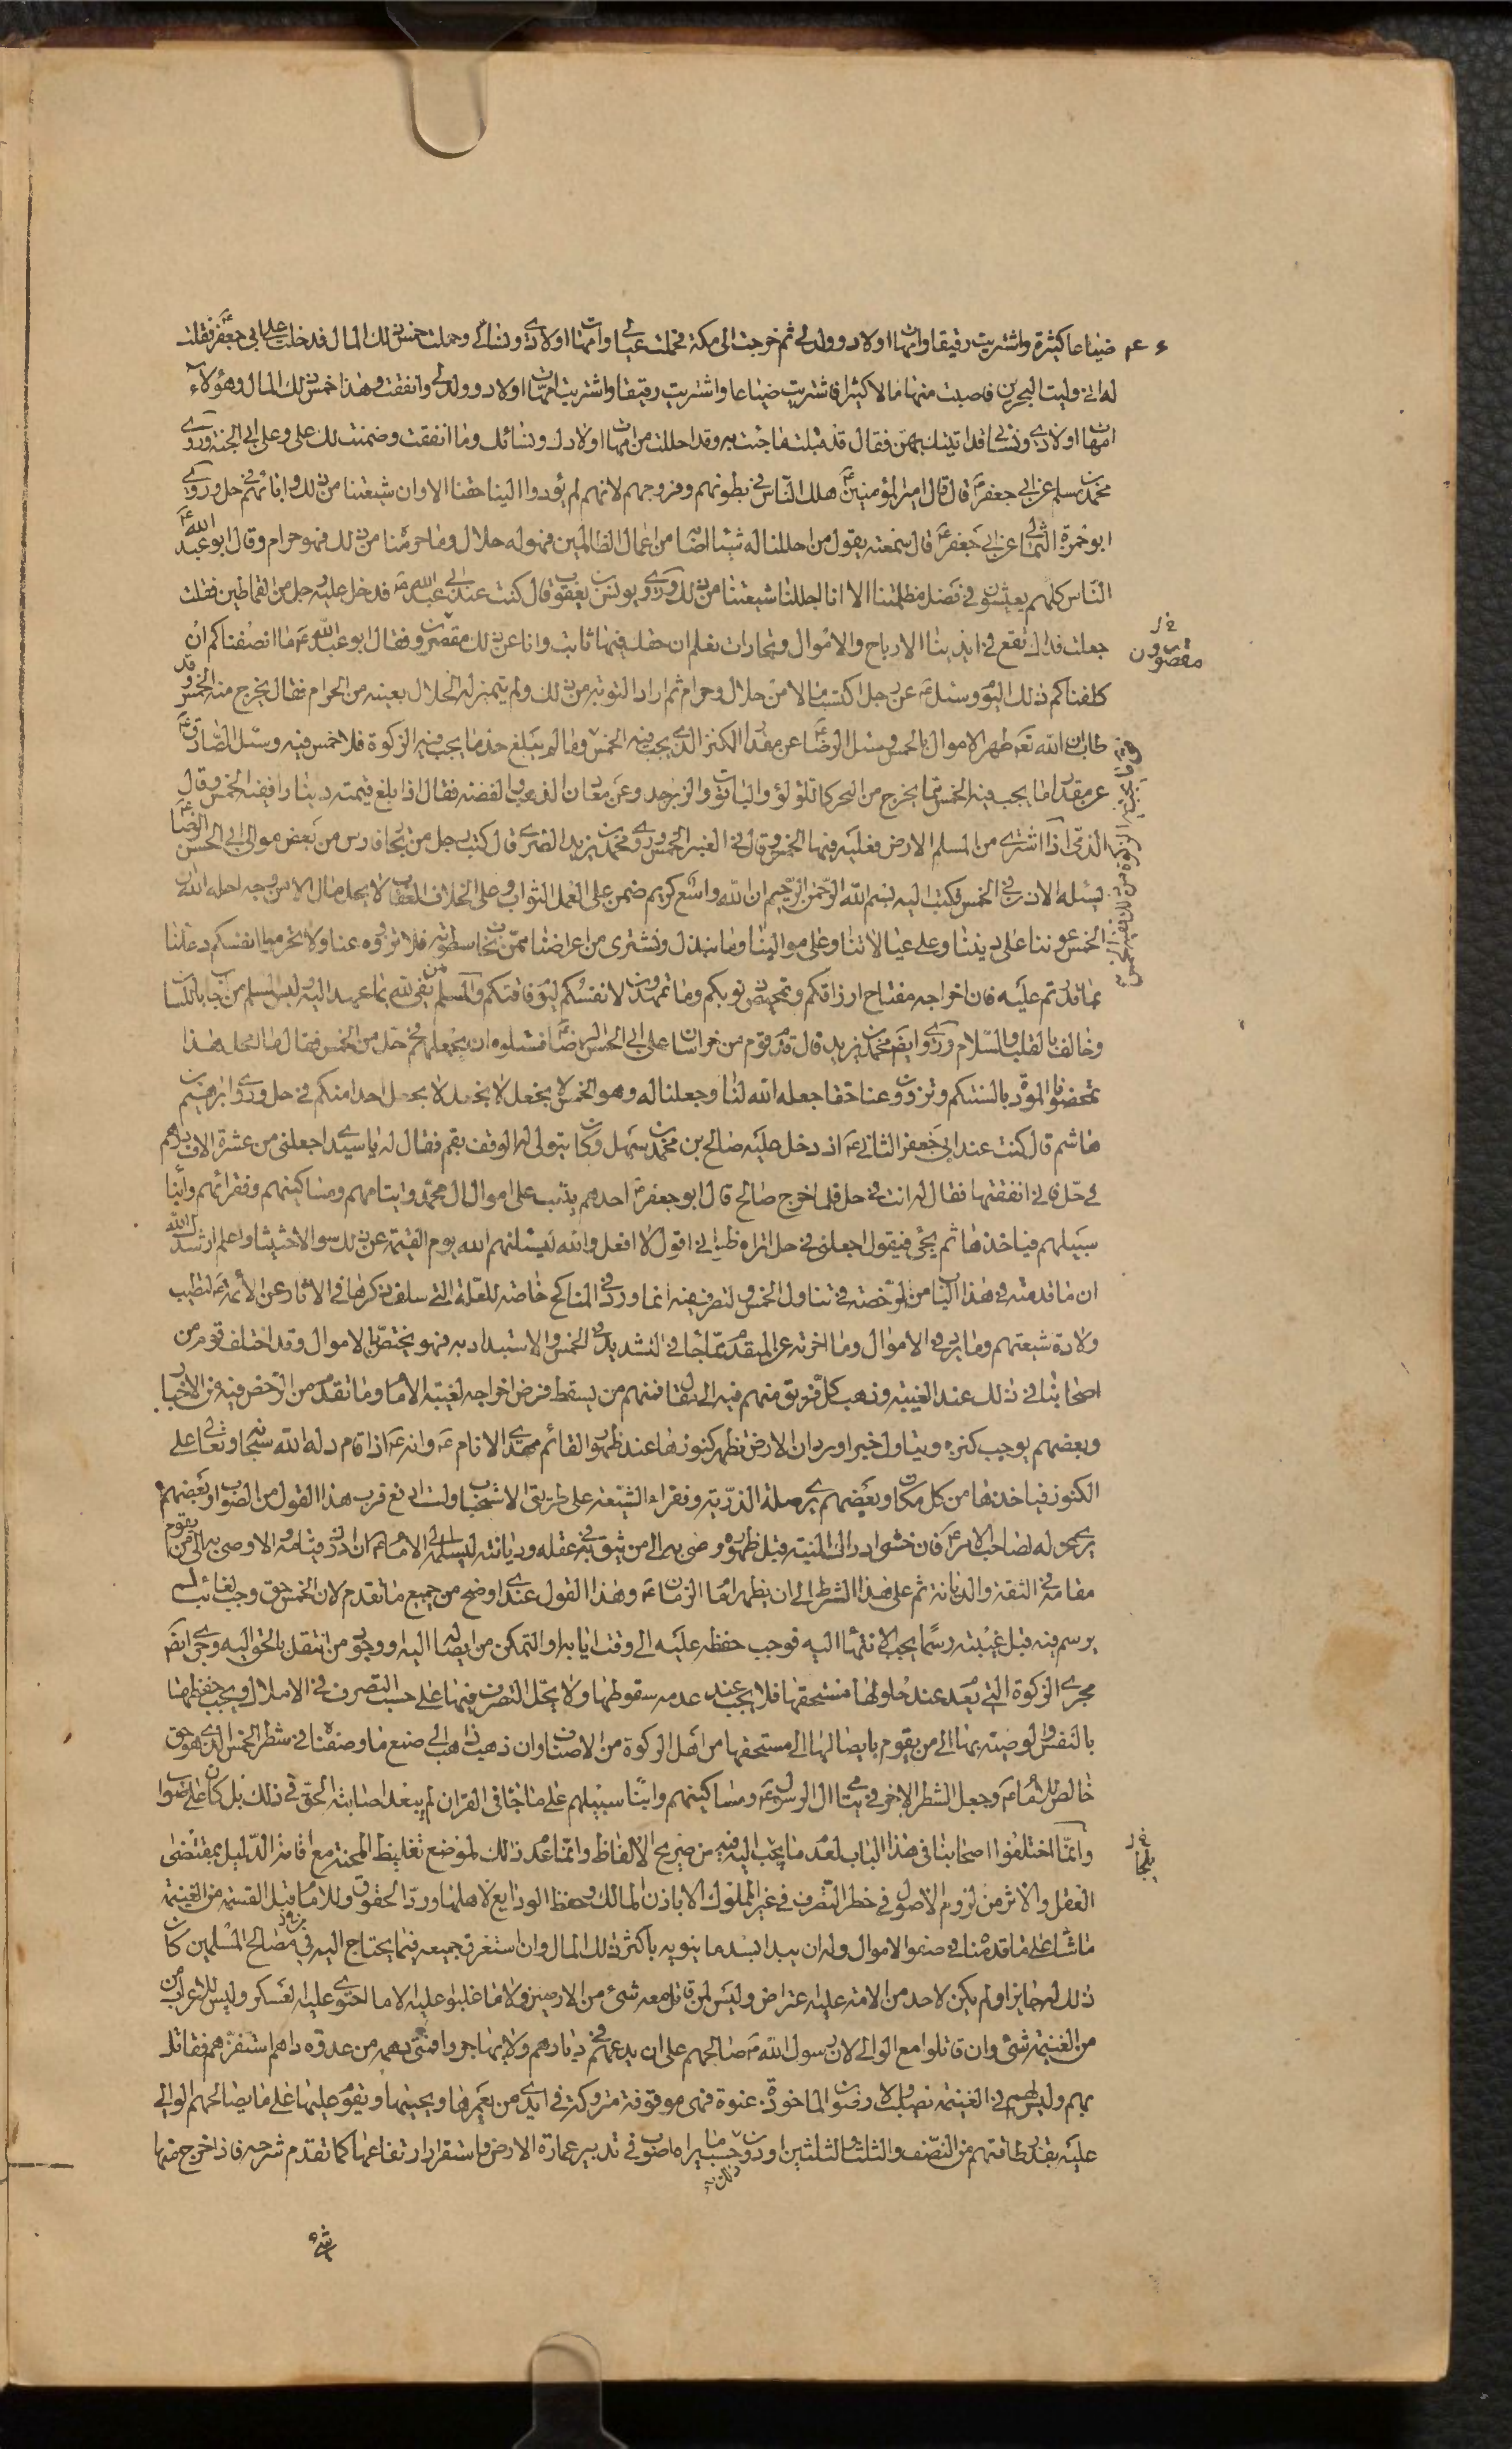 ضياعا كثيرة واشتريت رقيقا وامهات اولاد وولد لي ثم خرجت الى مكة فحملت عيالي وامهات اولادي ونسائي وحملت خمس ذلك المال فدخلت على ابي جعفر ع فقلت
له اني وليت البحرين فاصبت منها مالا كثيرا فاشتريت ضياعا واشتريت رقيقا واشتريت امهات اولاد وولد لي وانفقت وهذا خمس ذلك المال وهؤلاء
امهات اولادي ونسائي قد اتيتك بهن فقال قد قبلت ما جئت به وقد احللتك من امهات اولادك ونسائك وما انفقت وضمنت لك علي وعلى ابي الجنة وروى
محمد بن مسلم عن ابي جعفر ع قال قال امير المؤمنين ع هلك الناس في بطونهم وفروجهم لانهم لم يؤدوا الينا حقنا الا وان شيعتنا من ذلك وابائهم في حل وروى
ابو حمزة الثمالي عن ابي جعفر ع قال سمعته يقول من احللنا له شيئا اصابه من اعمال الظالمين فهو له حلال وما حرمنا من ذلك فهو حرام وقال ابو عبد الله ع
الناس كلهم يعيشون في فضل مظلمتنا الا انا احللنا شيعتنا من ذلك وروى يونس بن يعقوب قال كنت عند ابي عبد الله ع فدخل عليه رجل من القماطين فقال
جعلت فداك تقع في ايدينا الارباح والاموال وتجارات نعلم ان حقك فيها ثابت وانا عن ذلك مقصرون فقال ابو عبد الله ع ما انصفناكم ان
مقصرون
كلفناكم ذلك اليوم وسئل ع عن رجل اكتسب مالا من حلال وحرام ثم اراد التوبة من ذلك ولم يتميز له الحلال بعينه من الحرام فقال يخرج منه الخمس وقد
طاب ان الله تعالى طهر الاموال بالخمس وسئل الرضا ع عن مقدار الكنز الذي يجب فيه الخمس وما لم يبلغ حد ما يجب فيه الزكوة فلا خمس فيه وسئل الصادق ع
عن مقدار ما يجب فيه الخمس مما يخرج من البحر كاللؤلؤ والياقوت والزبرجد وعن معادن الذهب والفضة فقال اذا بلغ قيمته دينارا ففيه الخمس وقال
الذمي اذا اشترى من المسلم الارض فعليه فيها الخمس وقال في العنبر الخمس وروى محمد بن يزيد الطبري قال كتب رجل من تجار فارس من بعض موالي ابي الحسن الرضا ع
يسئله الاذن في الخمس فكتب اليه بسم الله الرحمن الرحيم ان الله واسع كريم ضمن على العمل الثواب وعلى الخلاف العقاب لا يحل مال الا من وجه احله الله ان
الخمس عوننا على ديننا وعلى عيالاتنا وعلى موالينا وما نبذل ونشتري من اعراضنا ممن نخاف سطوته فلا تزووه عنا ولا تحرموا انفسكم دعائنا
ما قدرتم عليه فان اخراجه مفتاح ارزاقكم وتمحيص ذنوبكم وما تمهدون لانفسكم ليوم فاقتكم والمسلم من يفي لله بما عهد اليه وليس المسلم من اجاب باللسان
وخالف بالقلب والسلام وروى ايضا محمد بن يزيد قال قدم قوم من خراسان على ابي الحسن الرضا ع فسئلوه ان يجعلهم في حل من الخمس فقال ما امحل هذا
تمحضونا المودة بالسنتكم وتزوون عنا حقا جعله الله لنا وجعلنا له وهو الخمس لا نجعل لا نجعل لا نجعل احدا منكم في حل وروى ابرهيم بن
هاشم قال كنت عند ابي جعفر الثاني ع اذ دخل عليه صالح بن محمد بن سهل وكان يتولى له الوقف بقم فقال له يا سيدي اجعلني من عشرة الاف درهم
في حل فاني انفقتها فقال له انت في حل فلما خرج صالح قال ابو جعفر ع احدهم يثب على اموال ال محمد وايتامهم ومساكينهم وفقرائهم وابناء
سبيلهم فياخذها ثم يجئ فيقول اجعلني في حل اتراه ظن اني اقول لا افعل والله ليسئلنهم الله يوم القيمة عن ذلك سؤالا حثيثا واعلم ارشدك الله
ان ما قدمته في هذا الباب من الرخصة في تناول الخمس والتصرف فيه انما ورد في المناكح خاصة للعلة التي سلف ذكرها في الاثار عن الائمة ع لتطيب
ولادة شيعتهم وما يرد في الاموال وما اخرته عن المتقدم مما جاء في التشديد في الخمس والاستبداد به فهو يختص بالاموال وقد اختلف قوم من
اصحابنا في ذلك عند الغيبة وذهب كل فريق منهم فيه الى مقال فمنهم من يسقط فرض اخراجه لغيبة الامام وما تقدم من الرخص فيه من الاخبار
وبعضهم يوجب كنزه ويتاول خبرا ورد ان الارض تظهر كنوزها عند ظهور القائم مهدي الانام ع وانه ع اذا قام دله الله سبحانه وتعالى على
الكنوز فياخذها من كل مكان وبعضهم يرى صلة الذرية وفقراء الشيعة على طريق الاستحباب ولست ادفع قرب هذا القول من الصواب وبعضهم
يرى عزله لصاحب الامر ع فان خشي ادراك المنية قبل ظهوره وصى به الى من يثق به في عقله وديانته ليسلمه الى الامام ع ان ادرك قيامه والا وصى به الى من يقوم
مقامه في الثقة والديانة ثم على هذا الشرط الى ان يظهر امام الزمان ع وهذا القول عندي اوضح من جميع ما تقدم لان الخمس حق وجب لغائب لم
يرسم فيه قبل غيبته رسما يجب الانتهاء اليه فوجب حفظه عليه الى وقت ايابه او التمكن من ايصاله اليه او وجود من انتقل بالحق اليه وجرى ايضا
مجرى الزكوة التي يعدم عند حلولها مستحقها فلا يجب عند عدمه سقوطها ولا يحل التصرف فيها على حسب التصرف في الاملاك ويجب حفظها
بالنفس والوصية بها الى من يقوم بايصالها الى مستحقها من اهل الزكوة من الاصناف وان ذهب ذاهب الى صنع ما وصفناه في شطر الخمس الذي هو حق
خالص للامام ع وجعل الشطر الاخر في يتامى ال الرسول ع ومساكينهم وابناء سبيلهم على ما جاء في القران لم يبعد اصابته الحق في ذلك بل كان على صواب
وانما اختلفوا اصحابنا في هذا الباب لعدم ما يجب اليه فيه من صريح الالفاظ وانما عدم ذلك لموضع تغليظ المحنة مع اقامة الدليل بمقتضى
يلجأ
العقل والاثر من لزوم الاصول في حظر التصرف في غير المملوك الا باذن المالك وحفظ الودايع لاهلها ورد الحقوق وللامام قبل القسمة من الغنيمة
ما شاء على ما قدمناه في صفو الاموال وله ان يبدا بسد ما ينوبه باكثر ذلك المال وان استغرق جميعه فيما يحتاج اليه في مصالح المسلمين كان
ذلك له جايزا ولم يكن لاحد من الامة عليه اعتراض وليس لمن قاتل معه شئ من الارضين ولا ما غلبوا عليه الا ما احتوى عليه العسكر وليس للاعراب
من الغنيمة شئ وان قاتلوا مع الوالي لان رسول الله ص صالحهم على ان يدعهم في ديارهم ولا يهاجروا فمتى دهمه من عدوه داهم استنفرهم فقاتل
بهم وليس لهم في الغنيمة نصيب والارضون الماخوذة عنوة فهي موقوفة متروكة في ايدي من يعمرها ويحييها ويقوم عليها على ما يصالحهم الوالي
عليه بقدر طاقتهم من النصف والثلث والثلثين او دون ذلك حسب ما يراه صوابا في تدبير عمارة الارض واستقرار ارتفاعها كما تقدم شرحه فاذا اخرج منها